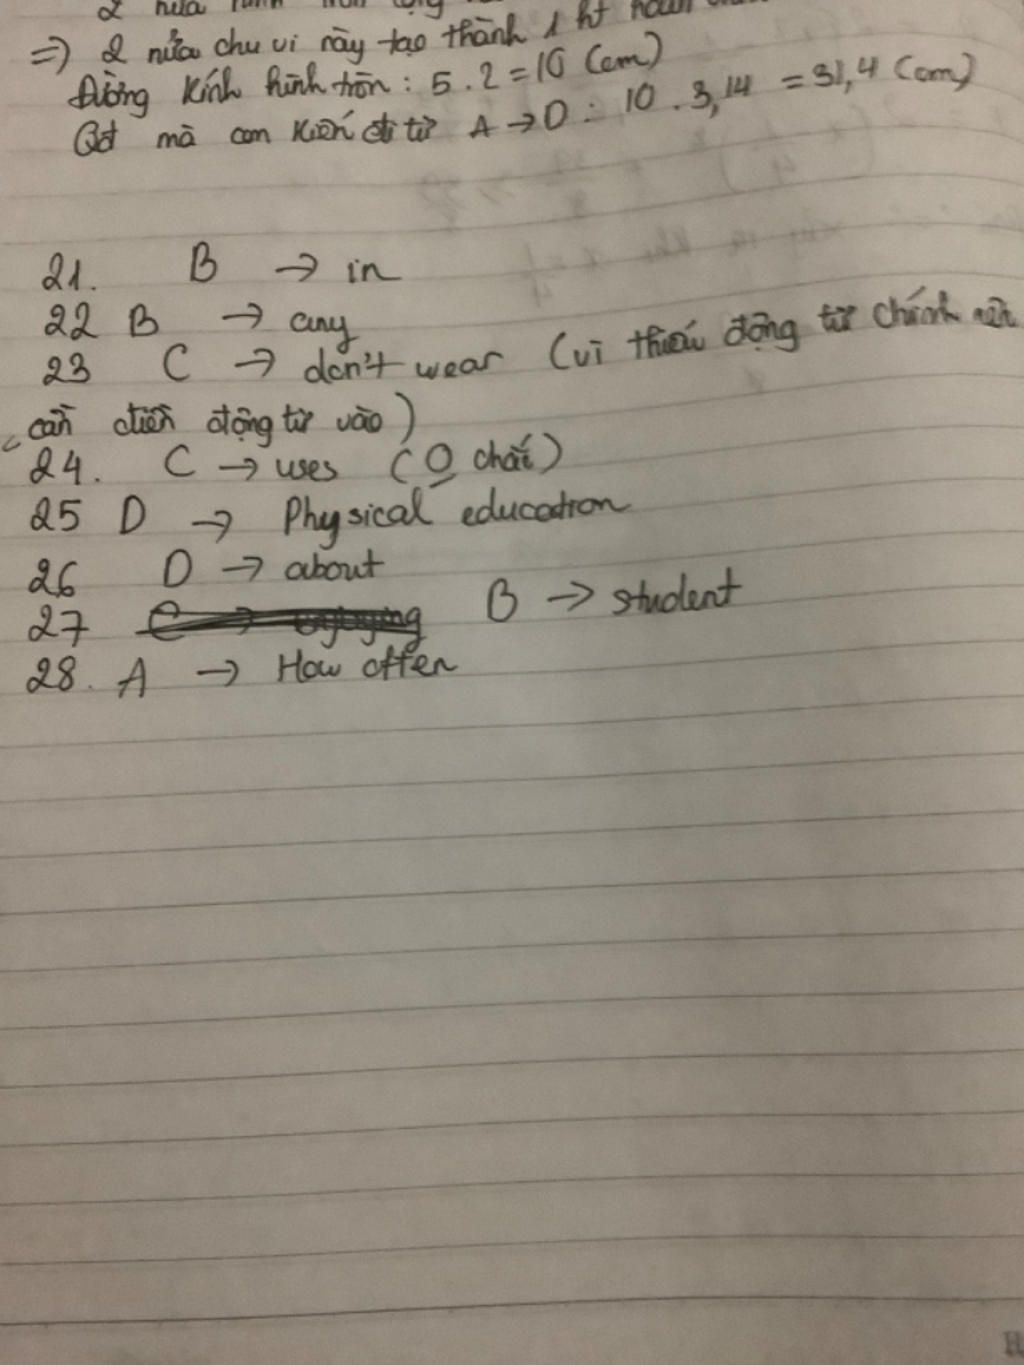 2 nửa hình tròn
=> 2 nửa chu vi này tạo thành 1 ht hoàn
Đường kính hình tròn : 5 . 2 = 10 (cm)
Qđ mà con kiến đi từ A → D : 10 . 3,14 = 31,4 (cm)
21. B → in
22 B → any
23 C → don't wear (vì thiếu động từ chính nên
cần điền động từ vào)
24. C → uses (O chắc)
25 D → Physical education
26 D → about
27 B → student
28. A → How often
H